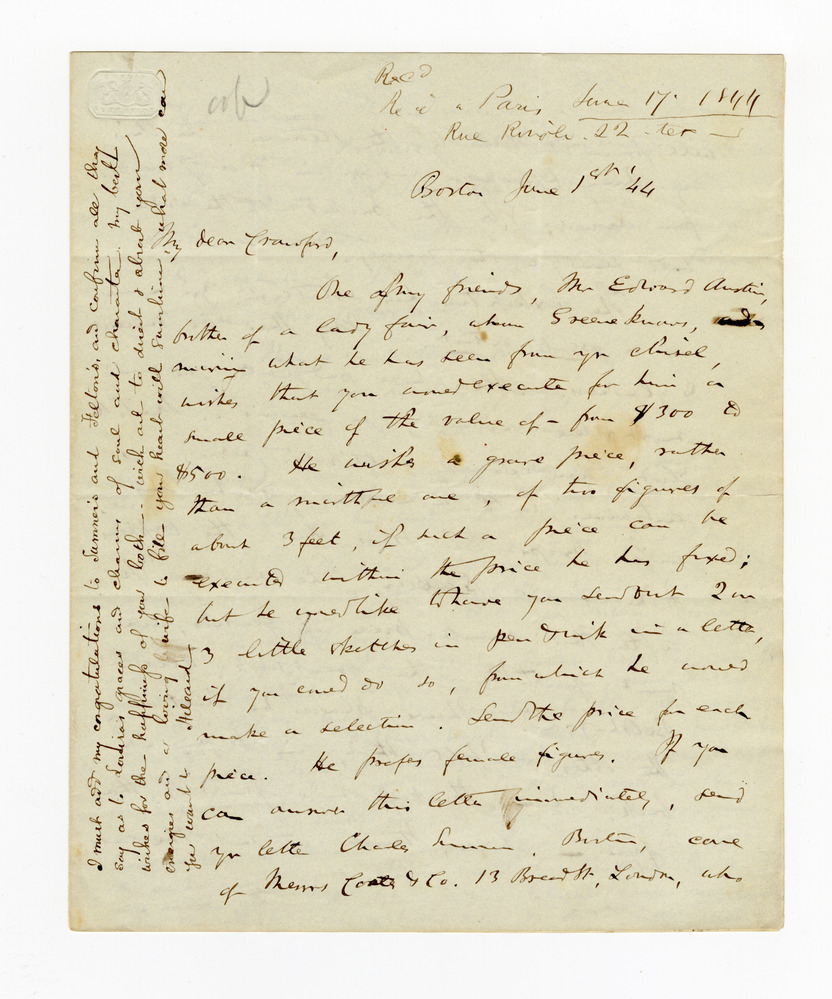 Rec'd
Rec'd a Paris, June 17. 1844
Rue Rivoli. 22 - ter -
Boston June 1st '44
My dear Crawford,
One of my friends, Mr Edward Austin,
brother of a lady fair, whom Greene knows,
admiring what he has seen from yr chisel,
wishes that you would execute for him a
small piece of the value of - from $300 to
$500. He wishes a grave piece, rather
than a mirthful one, of two figures of
about 3 feet, if such a piece can be
executed within the price he has fixed;
but he would like to have you send out 2 or
3 little sketches in pen & ink in a letter,
if you could do so, from which he would
make a selection. Send the price for each
piece. He prefers female figures. If you
can answer this letter immediately, send
yr letter Charles Sumner, Boston, care
of Messrs Coates & Co. 13 Bread St, London, who
I must add my congratulations to Sumner's and Felton's, and confirm all they
say as to Louisa's graces and charms of soul and character. My best
wishes for the happiness of you both - with art to direct & absorb your
energies and a loving wife to fill your heart with sunshine, what more can
you want? Hillard